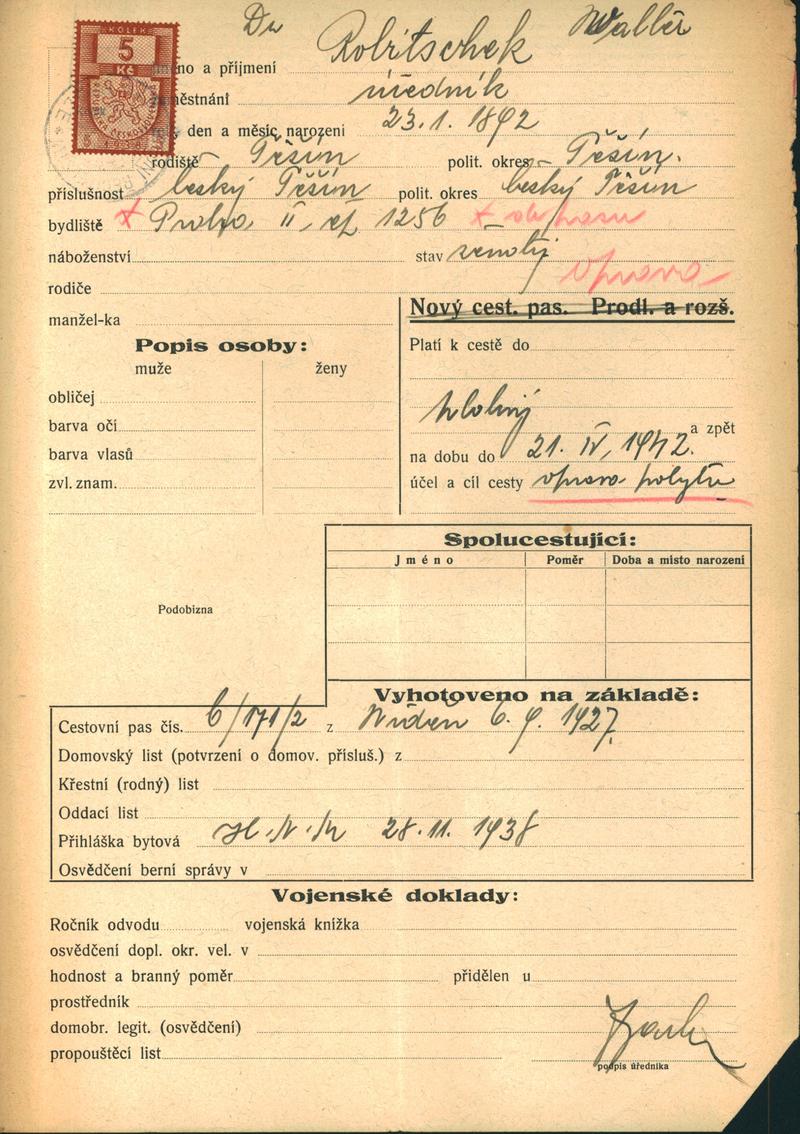 Dr Robitschek Walter
KOLEK
5
Kč
jméno a příjmení
zaměstnání úředník
den a měsíc narození 23.1. 1892
rodiště Těšín polit. okres Těšín.
příslušnost Český Těšín polit. okres Český Těšín
bydliště x Praha II, čp. 1256 x do pasu
náboženství stav ženatý
oprava
rodiče
Nový cest. pas. Prodl. a rozš.
manžel-ka
Popis osoby:
Platí k cestě do
muže ženy
obličej
barva očí
a zpět
barva vlasů
na dobu do 21. IV, 1942.
zvl. znam.
účel a cíl cesty oprava pobytu
Spolucestující:
Jméno Poměr Doba a místo narození
Podobizna
Vyhotoveno na základě:
Cestovní pas čís. 6/171/2 z Wídeň 6. 9. 1927.
Domovský list (potvrzení o domov. přísluš.) z
Křestní (rodný) list
Oddací list
Přihláška bytová 28.11. 1938
Osvědčení berní správy v
Vojenské doklady:
Ročník odvodu vojenská knížka
osvědčení dopl. okr. vel. v
hodnost a branný poměr přidělen u
prostředník
domobr. legit. (osvědčení)
propouštěcí list
podpis úředníka